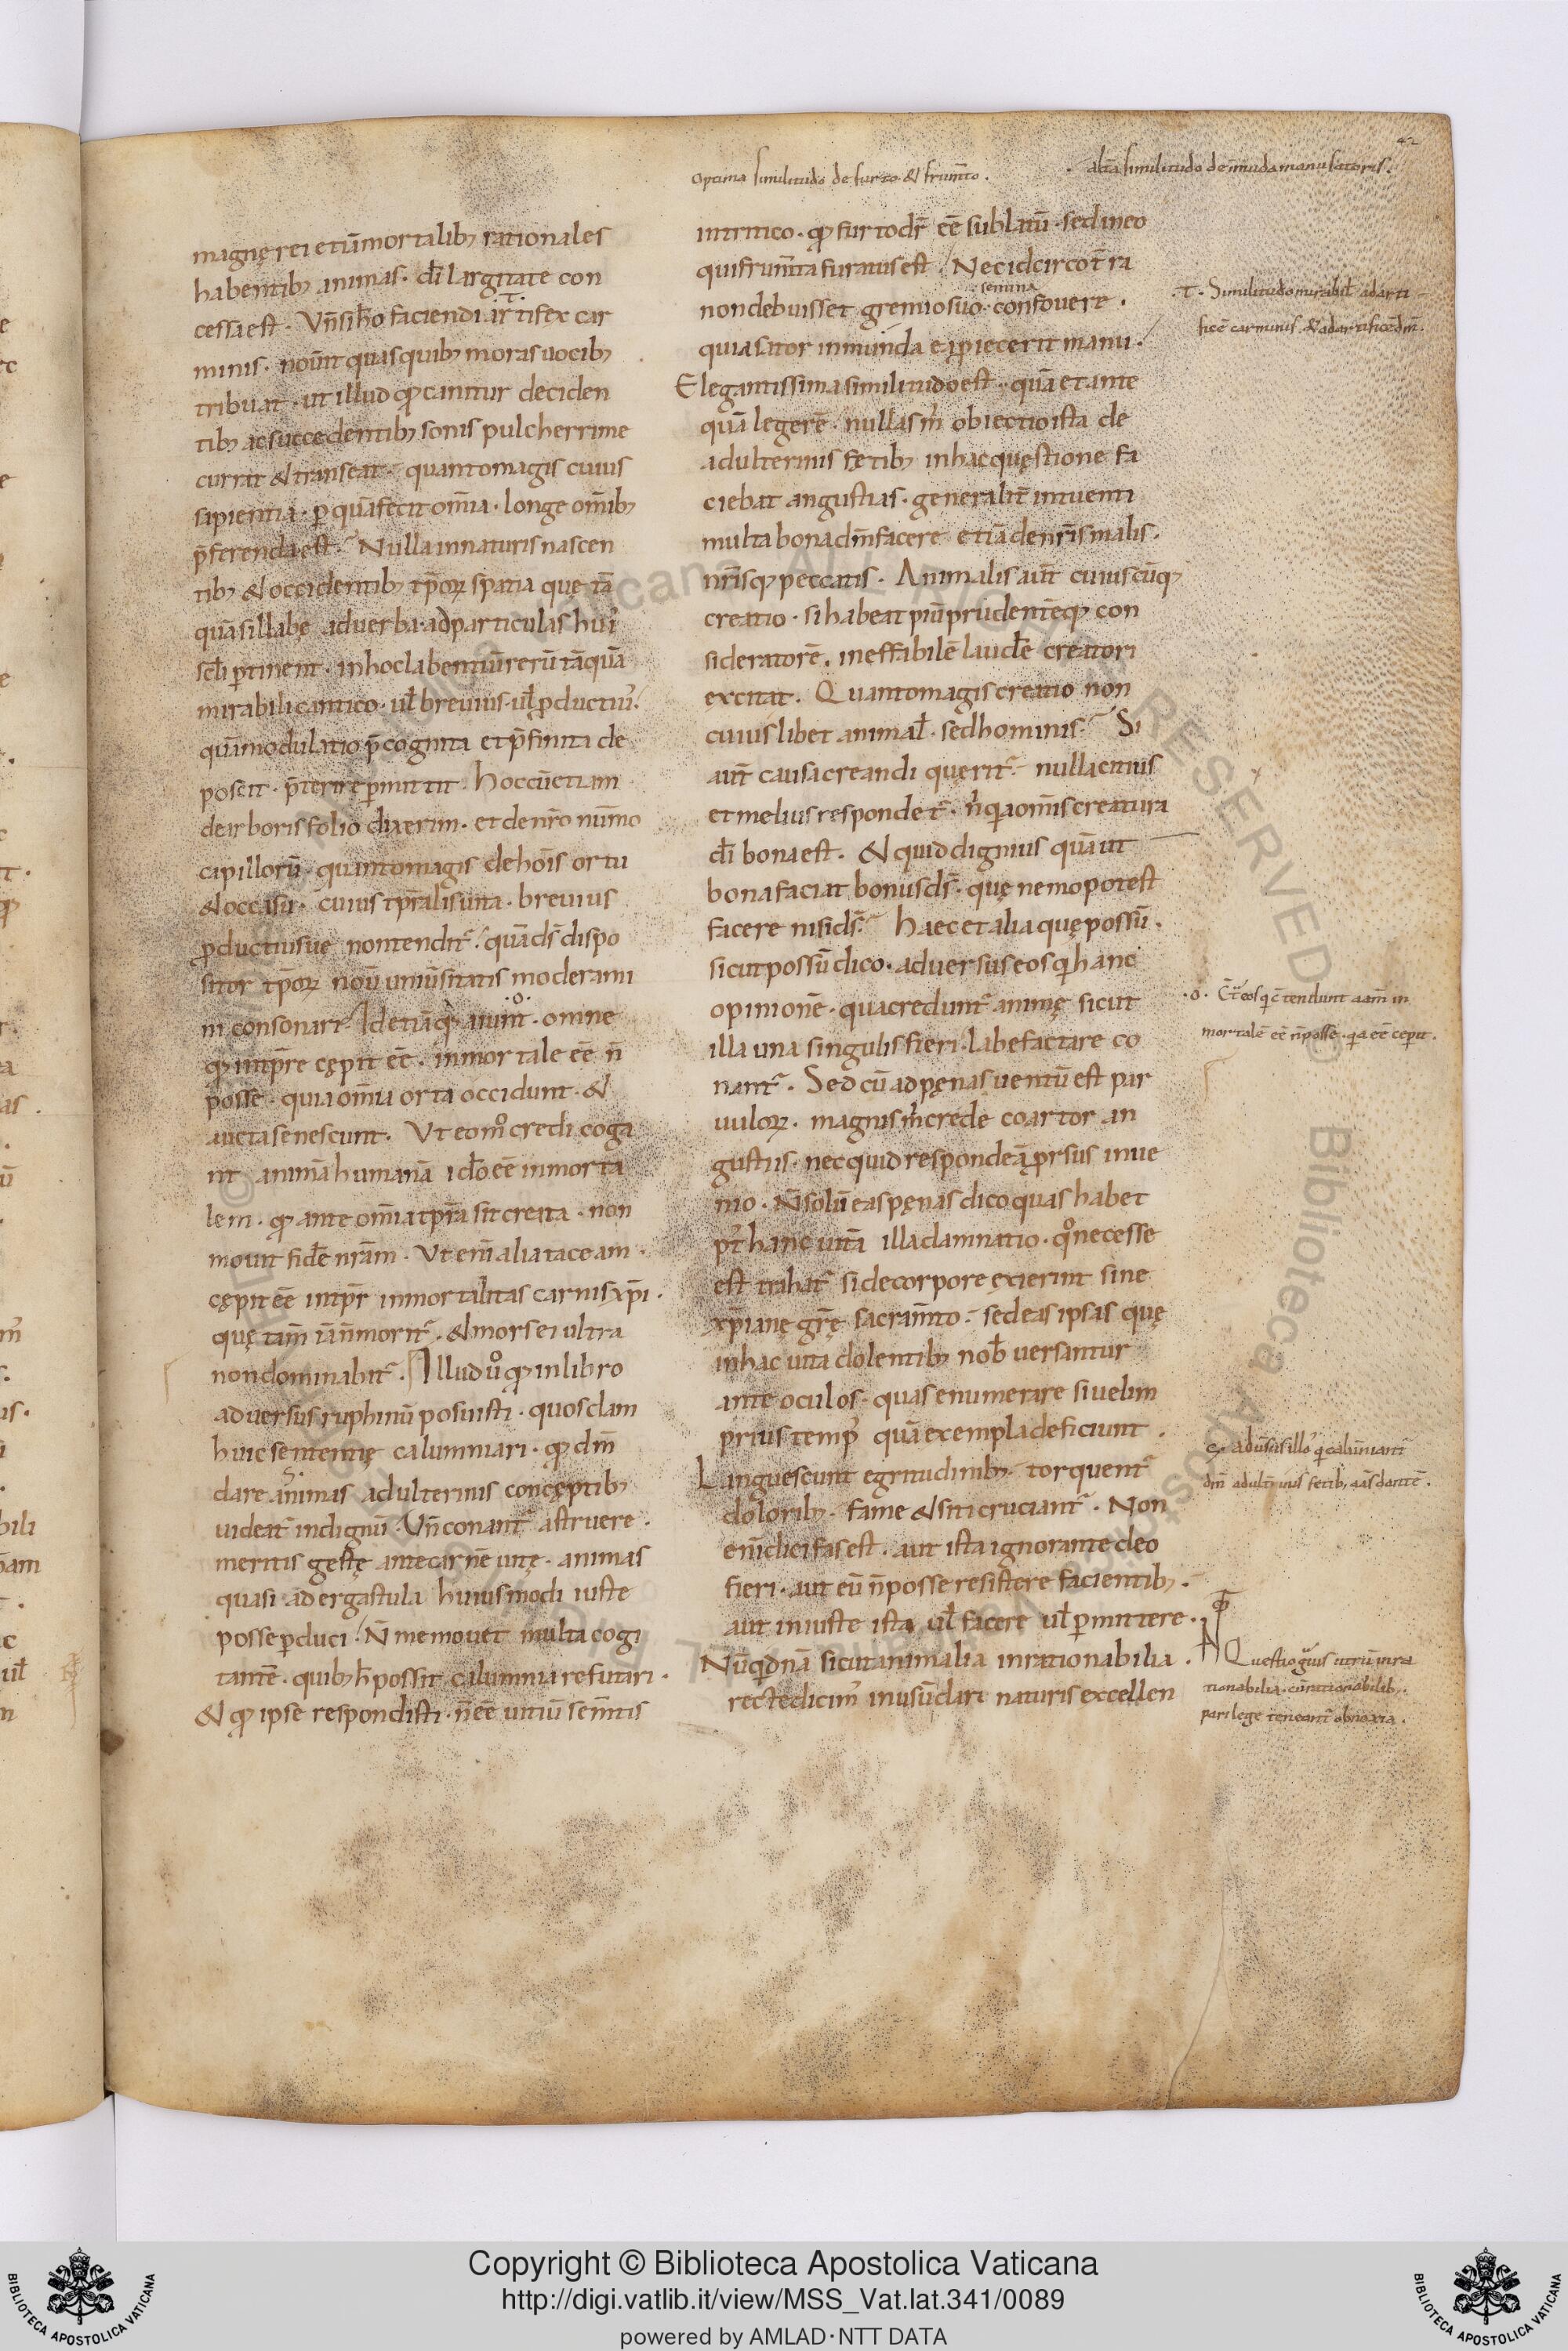 42
Optima similitudo de furto & frum̄to.
alt̄a similitudo de inmunda manu satoris.
magnę rei etiā mortalib; rationales
habentib; animas. dī largitate con
cessa est. Vn̄ si hō faciendi artifex car
minis. nouit quas quib; moras uocib;
tribuat. ut illud qđ canitur deciden
tib; ac succedentib; sonis pulcherrime
currat & transeat. quanto magis cuius
sapientia. p̱ quā fecit om̄ia. longe om̄ib;
p̄ferenda est. Nulla in naturis nascen
tib; & occidentib; tp̄oꝝ spatia quę tā
quā sillabę ad uerba. ad particulas hui'
scl̄i ꝑtinent. in hoc labentiū rerū tāquā
mirabili cantico. uł breuius. uł ꝓductiu'.
quā modulatio p̄cognita et p̄finita de
poscit. p̄terire ꝑmittit. Hoc cū etiam
de arboris folio dixerim. et de nr̄o num̄o
capillorū. quanto magis de hoīs ortu
& occasu. cuius tp̄ralis uita. breuius
ꝓductiusue non tenditr̄. quā ds̄ dispo
sitor tp̄oꝝ nouit uniūsitatis moderami
ni consonare. Id etiā qđ aiunt. omne
qđ in tp̄re cępit eē. inmortale eē n̄
posse. quia om̄ia orta occidunt. &
aucta senescunt. Vt eo mō credi coga
nt animā humanā ideo eē inmorta
lem. qđ ante om̄ia tp̄ra sit creata. non
mouit fidē nr̄am. Vt em̄ alia taceam.
cępit eē in tp̄r inmortalitas carnis xp̄i.
quę tam̄ iā n̄ moritr̄. & mors ei ultra
non dominabitr̄. Illud ů qđ in libro
aduersus ruphinū posuisti. quosdam
huic sententię calumniari. qđ dm̄
dare animas adulterinis conceptib;
uideatr̄ indignū. Vn̄ conantr̄ astruere.
meritis gestę ante carnē uitę. animas
quasi ad ergastula huiusmodi iuste
posse ꝑduci. N̄ me mouet multa cogi
tantē. quib; h̄ possit calumnia refutari.
& qđ ipse respondisti. n̄ eē uitiū sem̄tis
in tritico. qđ furto dr̄ eē sublatū. sed in eo
qui frum̄ta furatus est. Nec idcirco t̄ra
semina
non debuisset gremio suo confouere.
quia sator inmunda ea ꝓiecerit manu.
Elegantissima similitudo est. quā et ante
quā legerē. nullas m̄ obiectio ista de
adulterinis fętib; in hac quęstione fa
ciebat angustias. generalit̄ intuenti
multa bona dm̄ facere etiā de nr̄is malis.
nr̄isq; peccatis. Animalis aut̄ cuiuscūq;
creatio. si habeat piū prudentēq; con
sideratorē. ineffabilē laudē creatori
excitat. Quanto magis creatio non
cuiuslibet animal. sed hominis. Si
aut̄ causa creandi quęritr̄. nulla citius
et melius respondetr̄. n̄ quia om̄is creatura
dī bona est. & quid dignius quā ut
bona faciat bonus ds̄. quę nemo potest
facere nisi ds̄. Haec et alia quę possū.
sicut possū dico. aduersus eos qui hanc
opinionē. qua creduntr̄ animę sicut
illa una singulis fieri. labefactare co
nantr̄. Sed cū ad pęnas uentū est par
uuloꝝ. magnis m̄ crede coartor an
gustiis. nec quid respondeā ꝓrsus inue
nio. N̄ solū eas pęnas dico quas habet
pt̄ hanc uitā illa damnatio. quo necesse
est trahatr̄ si de corpore exierint sine
xp̄ianę gr̄ę sacram̄to. sed eas ipsas quę
in hac uita dolentib; nob̄ uersantur
ante oculos. quas enumerare si uelim
prius temp' quā exempla deficiunt.
Languescunt egritudinib;. torquentr̄
doloribꝫ. fame & siti cruciantr̄. Non
em̄ dici fas est. aut ista ignorante deo
fieri. aut eū n̄ posse resistere facientib;.
aut iniuste ista uł facere uł ꝑmittere.
Nūquidnā sicut animalia inrationabilia.
recte dicim' in usū dari naturis excellen
.T. Similitudo mirabił ad arti
ficē carminis. & ad artificē dm̄.
.o. Ct̄ eos qui c̄tendunt aam̄ in
mortalē eē n̄ posse. quia eē cepit.
ꝯ. adūsus illo' qui calūniantr̄
dm̄ adult̄inis fetib; aas dantē.
Questio gūis utrū inra
tionabilia. cū rationabilib;.
pari lege teneantr̄ obnoxia.
Copyright © Biblioteca Apostolica Vaticana
http://digi.vatlib.it/view/MSS_Vat.lat.341/0089
powered by AMLAD·NTT DATA
BIBLIOTECA APOSTOLICA VATICANA
BIBLIOTECA APOSTOLICA VATICANA